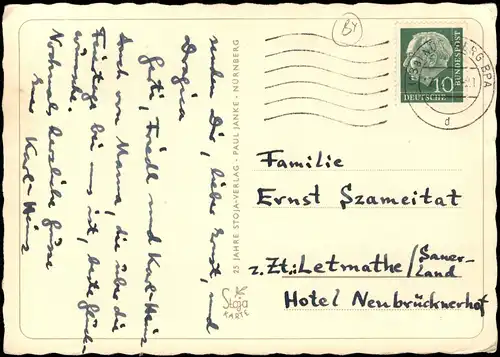 senden Dir, lieber Ernst, und
Dorgina
Gerti, Friedl und Karl-Heinz
Auch von Mama, die über die
Feiertage bei uns ist, beste Glück-
wünsche.
Nochmals herzliche Grüsse
Euer Karl-Heinz
25 JAHRE STOJA-VERLAG · PAUL JANKE · NÜRNBERG
Stoja
KARTE
BY
10
DEUTSCHE
BUNDESPOST
d
Familie
Ernst Szameitat
z.Zt.: Letmathe/Sauer-
land
Hotel Neubrücknerhof